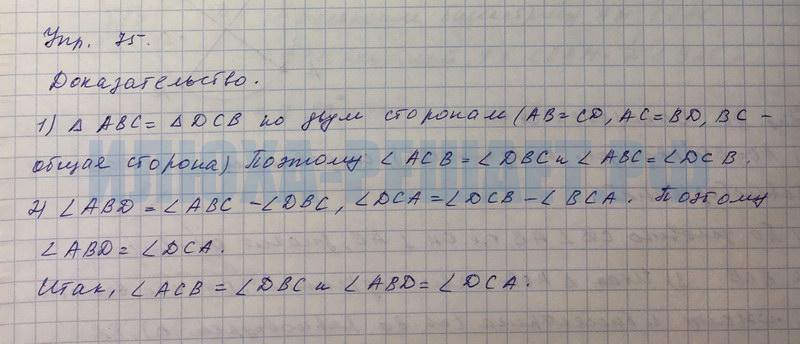 Упр. 75.
Доказательство.
1) △ ABC = △ DCB по двум сторонам (AB = CD, AC = BD, BC –
общая сторона) Поэтому ∠ ACB = ∠ DBC и ∠ ABC = ∠ DCB.
2) ∠ ABD = ∠ ABC - ∠ DBC, ∠ DCA = ∠ DCB - ∠ BCA. Поэтому
∠ ABD = ∠ DCA.
Итак, ∠ ACB = ∠ DBC и ∠ ABD = ∠ DCA.